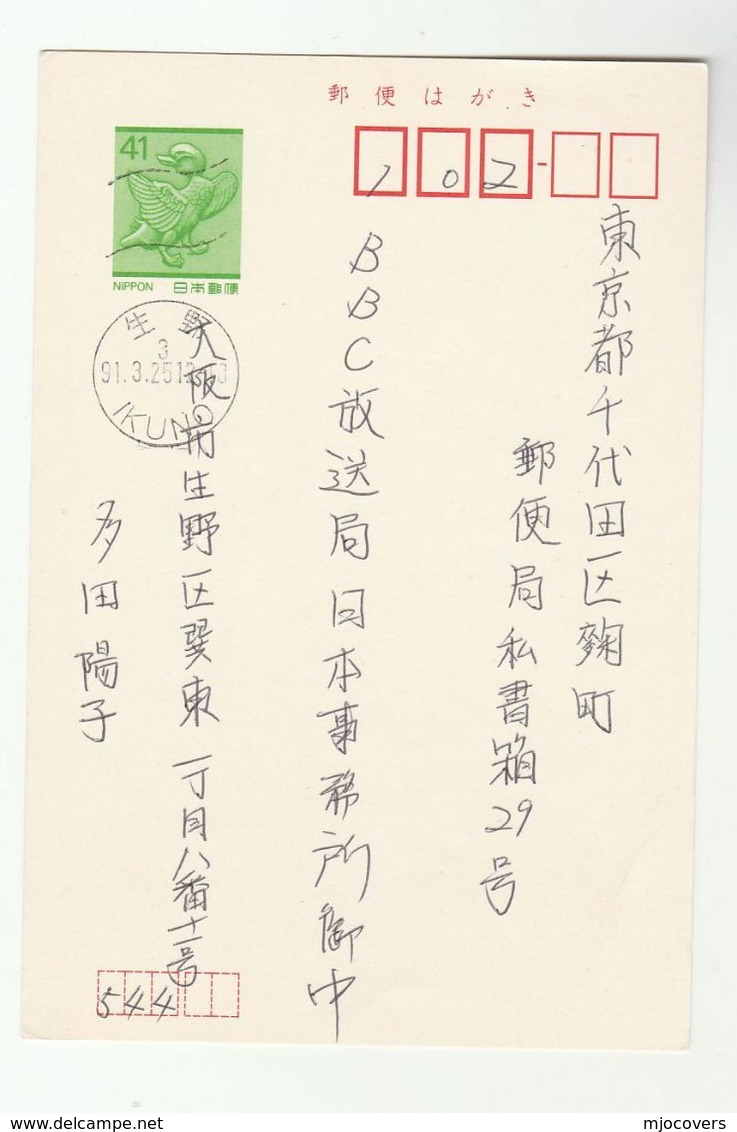 郵便はがき
41
NIPPON 日本郵便
102
東京都千代田区麹町
郵便局私書箱29号
BBC放送局日本事務所御中
生野
3
91.3.25
IKUNO
大阪市生野区巽東一丁目八番十一号
多田陽子
544
delcampe.net
mjocovers